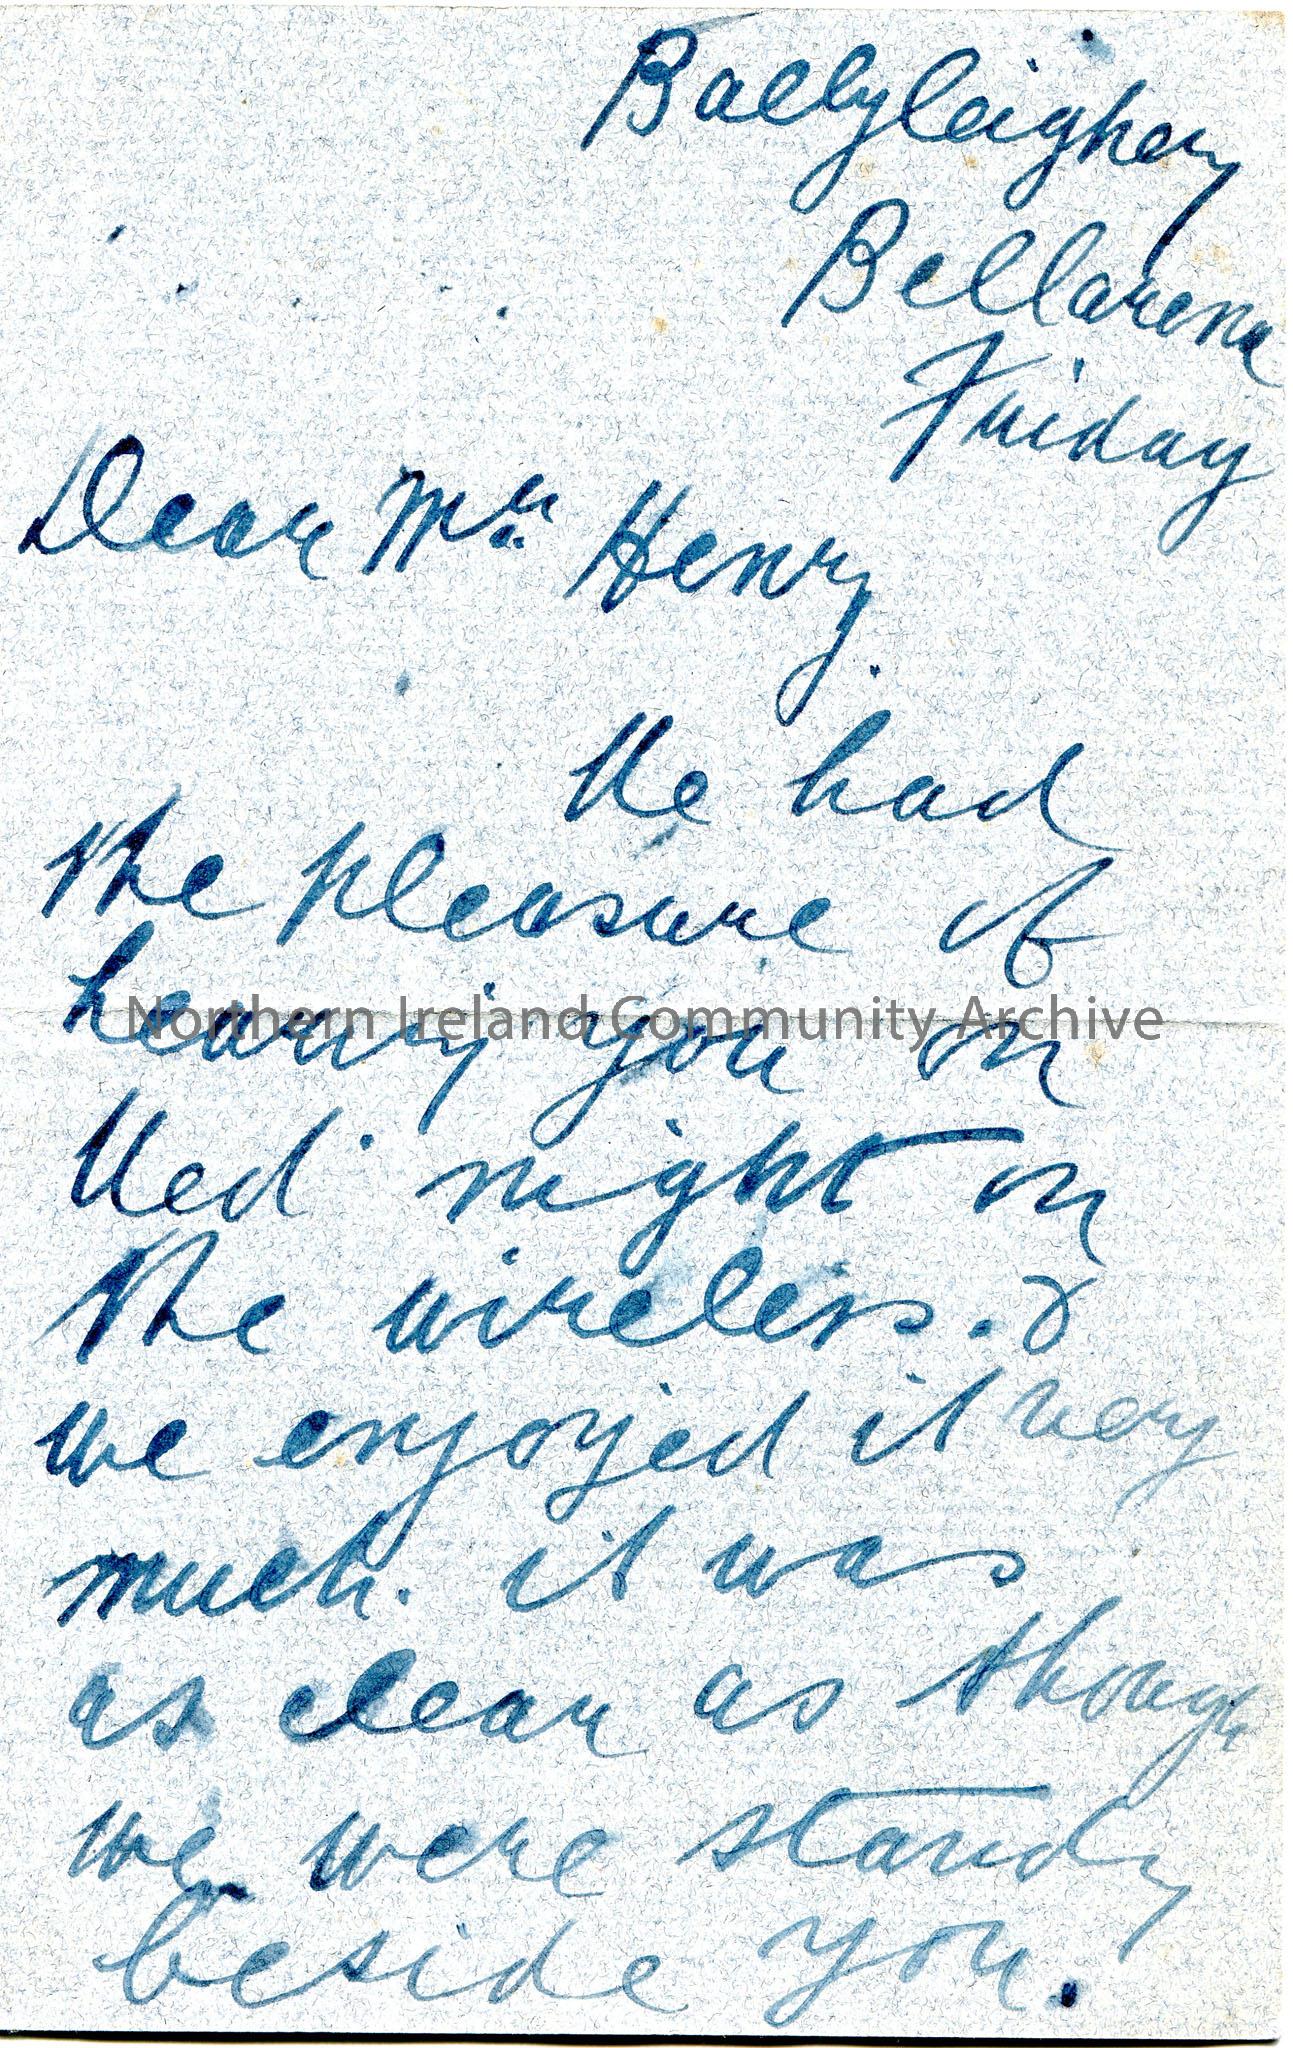 Ballyleighery
Bellarena
Friday
Dear Mr. Henry
We had
the pleasure of
hearing you on
Wed. night on
the wireless. &
we enjoyed it very
much. it was
as clear as though
we were standing
beside you.
Northern Ireland Community Archive